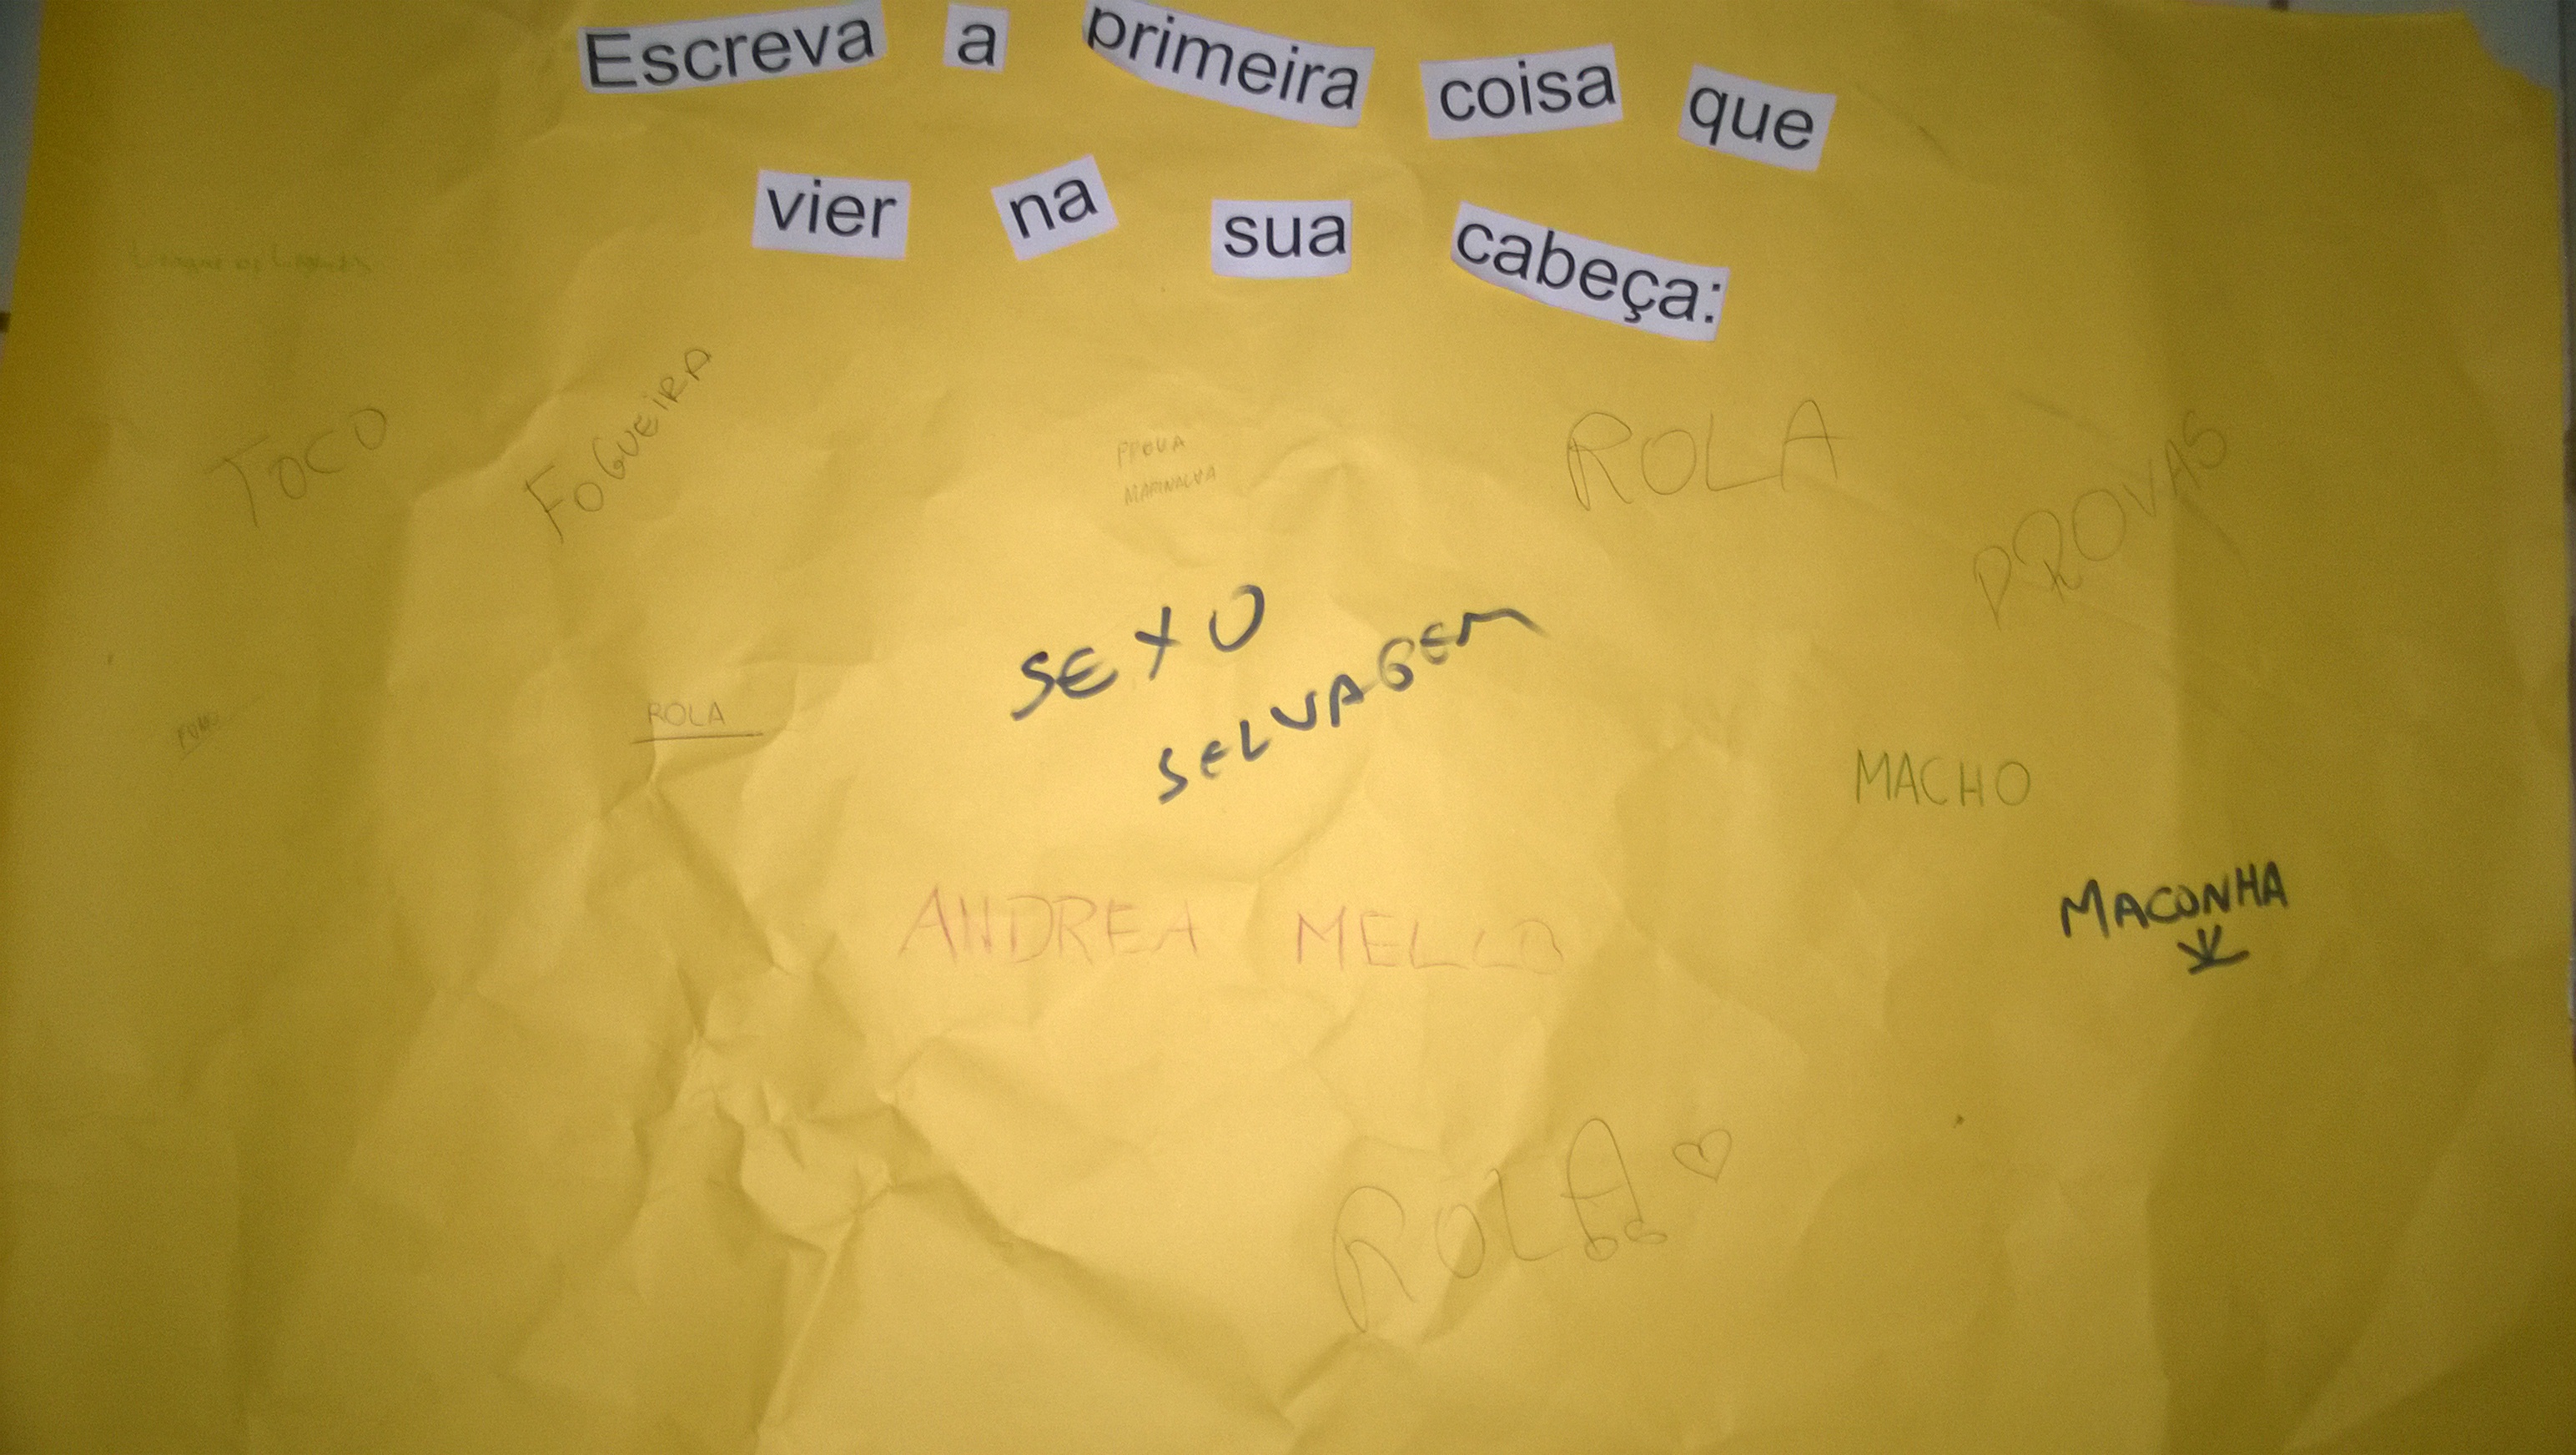 Escreva a primeira coisa que
vier na sua cabeça:
TOCO
FOGUEIRA
PROVA
MARINALVA
ROLA
PROVAS
SEXO
SELVAGEM
ROLA
MACHO
MACONHA
ANDREA MELLO
ROLA